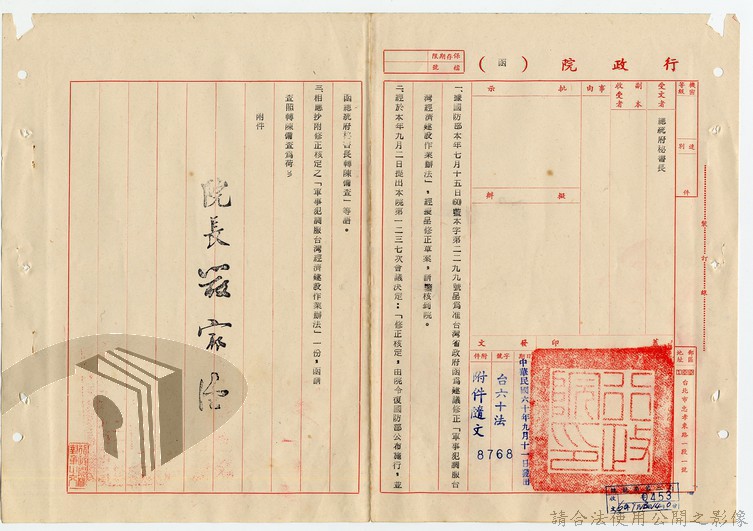 行政院（函）
保存期限
檔號
機密等級
速別
件
受文者
總統府秘書長
副本收受者
事由
批示
擬辦
郵區
地址
台北市忠孝東路一段一號
蓋印
發文
日期
中華民國六十年九月十一日發出
字號
台六十法
8768
附件
附件隨文
裝訂線
一、據國防部本年七月十五日
本字第二二九九號呈為准台灣省政府函為建議修正「軍事犯調服台
灣經濟建設作業辦法」，經擬呈修正草案，請鑒核到院。
二、經於本年九月二日提出本院第一二三七次會議決定：「修正核定，由院令復國防部公布施行，並
函總統府秘書長轉陳備查」等語。
三、相應抄附修正核定之「軍事犯調服台灣經濟建設作業辦法」一份，函請
查照轉陳備查為荷。
附件
院長嚴家淦
行政院印
0453
請合法使用公開之影像